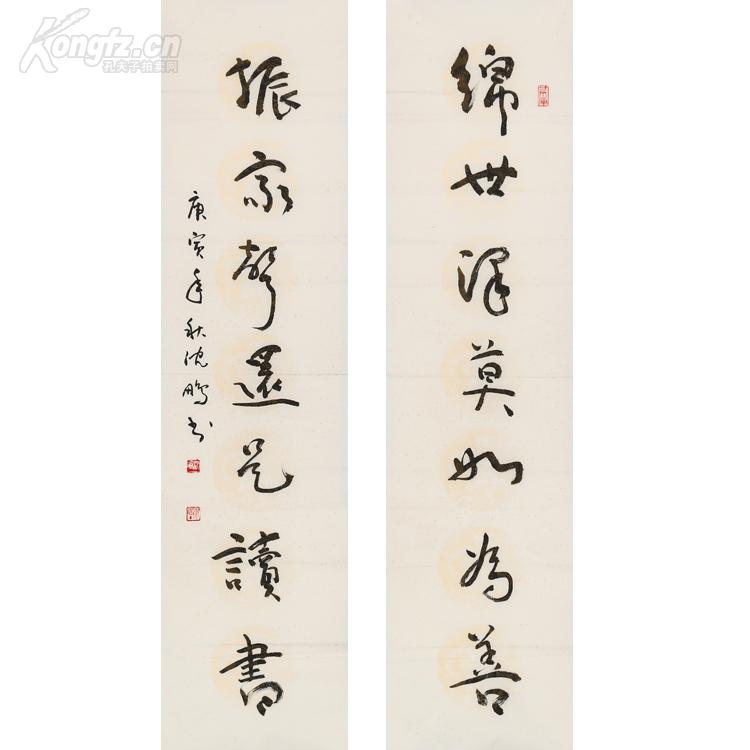 綿世澤莫如為善
振家聲還是讀書
庚寅年秋沈鵬书
Kongfz.cn
孔夫子拍卖网